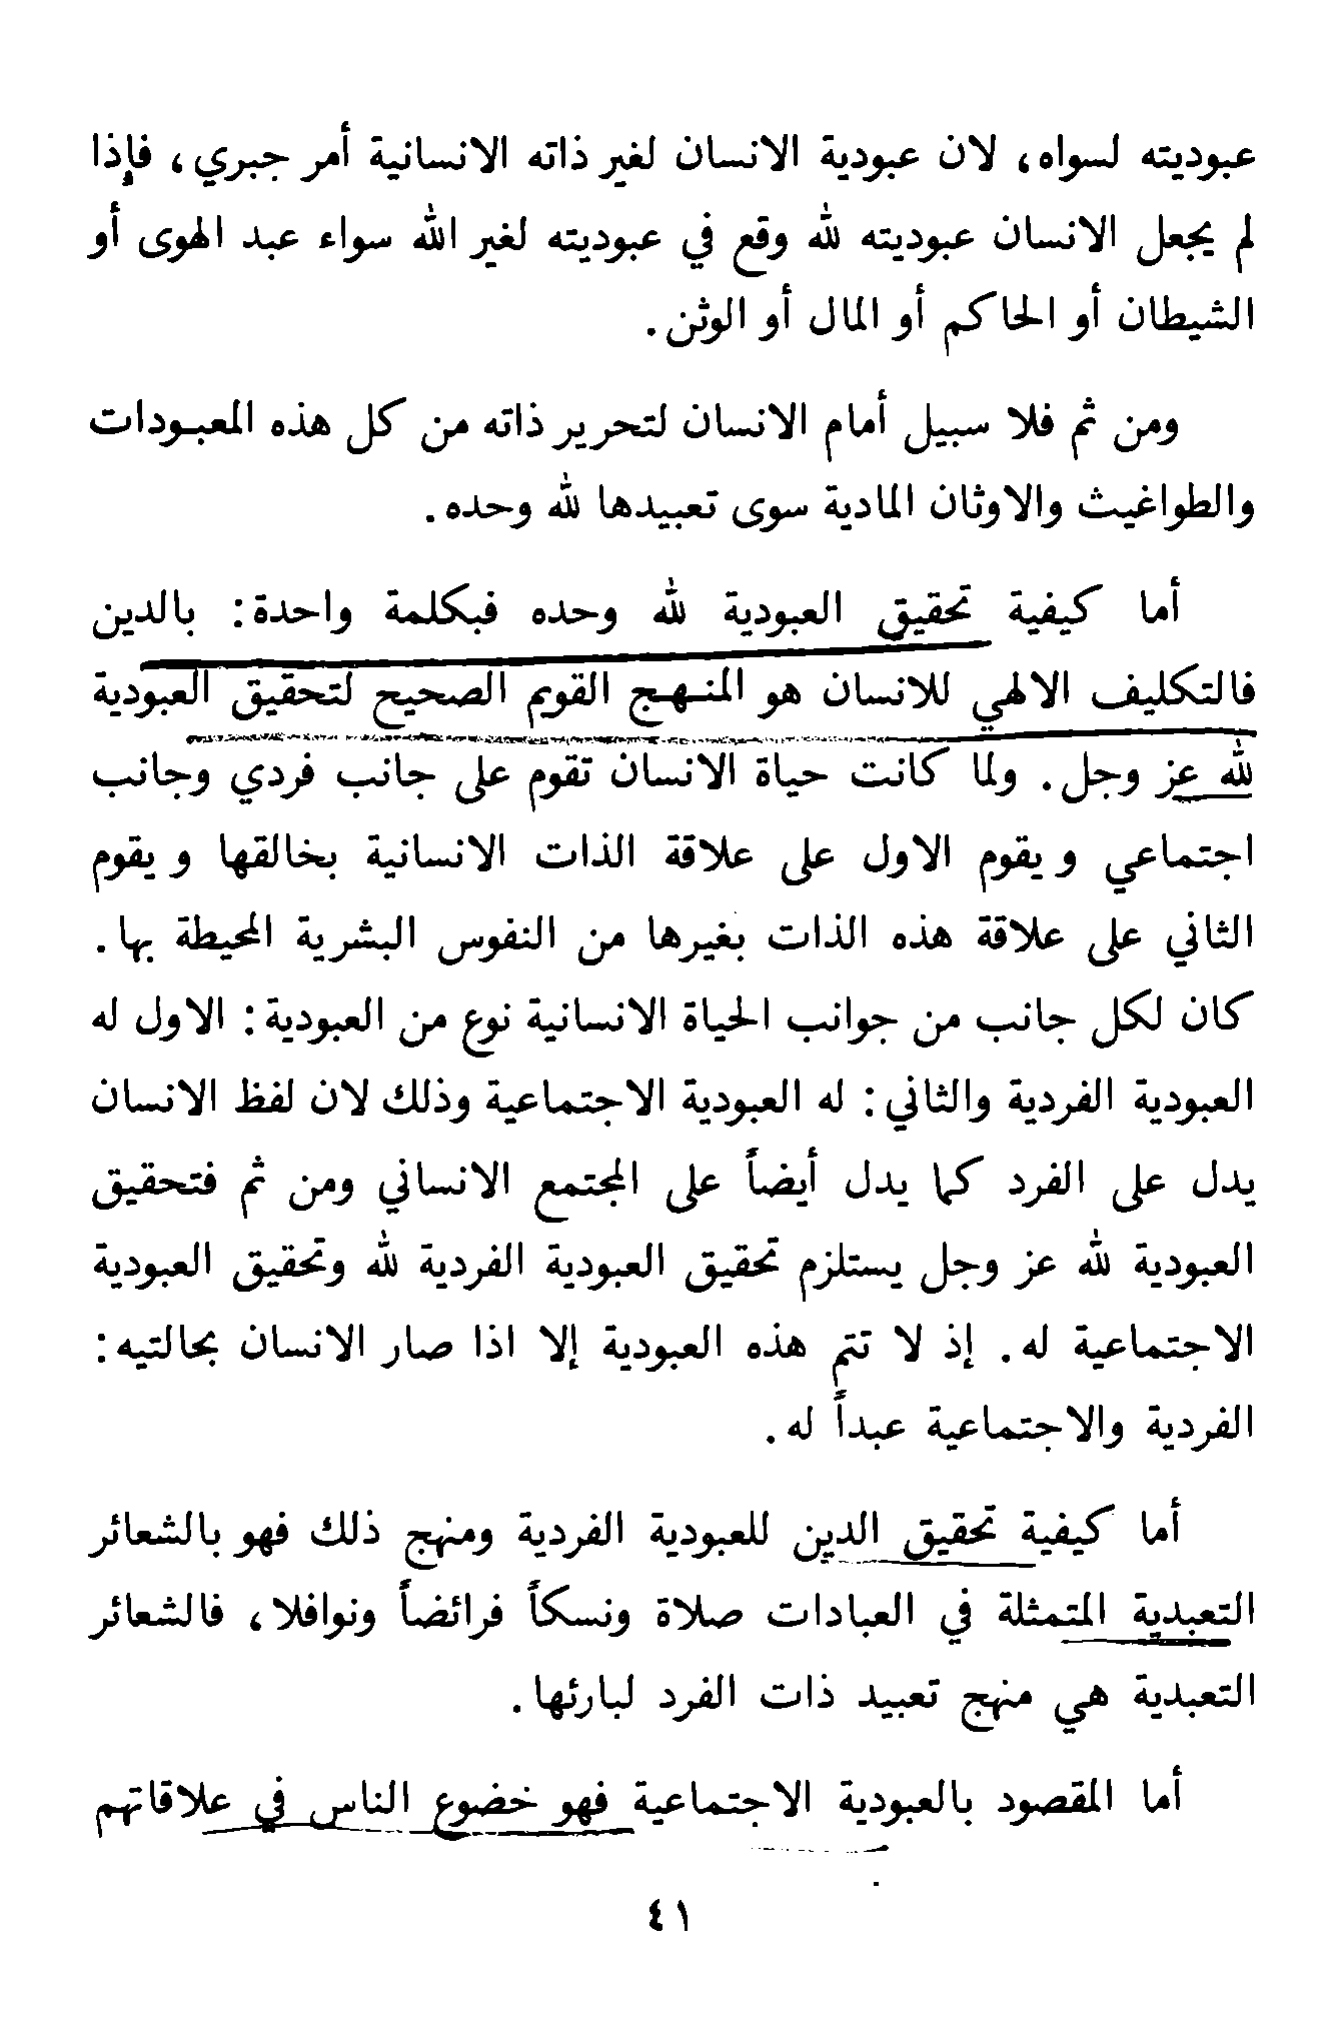 عبوديته لسواه، لان عبودية الانسان لغير ذاته الانسانية أمر جبري، فإذا
لم يجعل الانسان عبوديته لله وقع في عبوديته لغير الله سواء عبد الهوى أو
الشيطان أو الحاكم أو المال أو الوثن.
ومن ثم فلا سبيل أمام الانسان لتحرير ذاته من كل هذه المعبودات
والطواغيث والاوثان المادية سوى تعبيدها لله وحده.
أما كيفية تحقيق العبودية لله وحده فبكلمة واحدة: بالدين
فالتكليف الالهي للانسان هو المنهج القويم الصحيح لتحقيق العبودية
لله عز وجل. ولما كانت حياة الانسان تقوم على جانب فردي وجانب
اجتماعي ويقوم الاول على علاقة الذات الانسانية بخالقها ويقوم
الثاني على علاقة هذه الذات بغيرها من النفوس البشرية المحيطة بها.
كان لكل جانب من جوانب الحياة الانسانية نوع من العبودية: الاول له
العبودية الفردية والثاني: له العبودية الاجتماعية وذلك لان لفظ الانسان
يدل على الفرد كما يدل أيضاً على المجتمع الانساني ومن ثم فتحقيق
العبودية لله عز وجل يستلزم تحقيق العبودية الفردية لله وتحقيق العبودية
الاجتماعية له. إذ لا تتم هذه العبودية إلا اذا صار الانسان بحالتيه:
الفردية والاجتماعية عبداً له.
أما كيفية تحقيق الدين للعبودية الفردية ومنهج ذلك فهو بالشعائر
التعبدية المتمثلة في العبادات صلاة ونسكاً فرائضاً ونوافلا، فالشعائر
التعبدية هي منهج تعبيد ذات الفرد لبارئها.
أما المقصود بالعبودية الاجتماعية فهو خضوع الناس في علاقاتهم
٤١